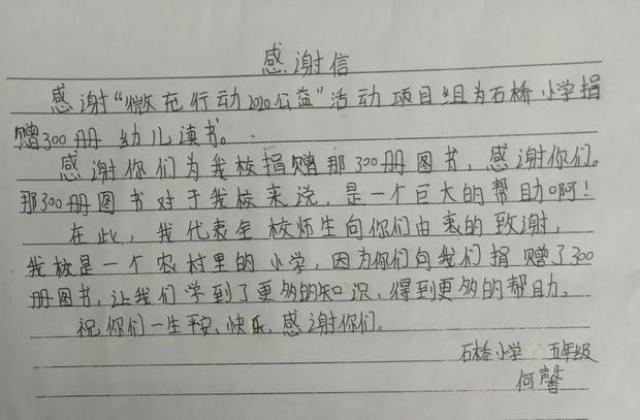 感谢信
感谢“微充行动2020公益”活动项目组为石桥小学捐
赠300册幼儿读书。
感谢你们为我校捐赠那300册图书,感谢你们。
那300册图书对于我校来说,是一个巨大的帮助啊!
在此,我代表全校师生向你们由衷的致谢,
我校是一个农村里的小学,因为你们向我们捐赠了300
册图书,让我们学到了更多的知识,得到更多的帮助。
祝你们一生平安、快乐,感谢你们。
石桥小学 五年级
何馨